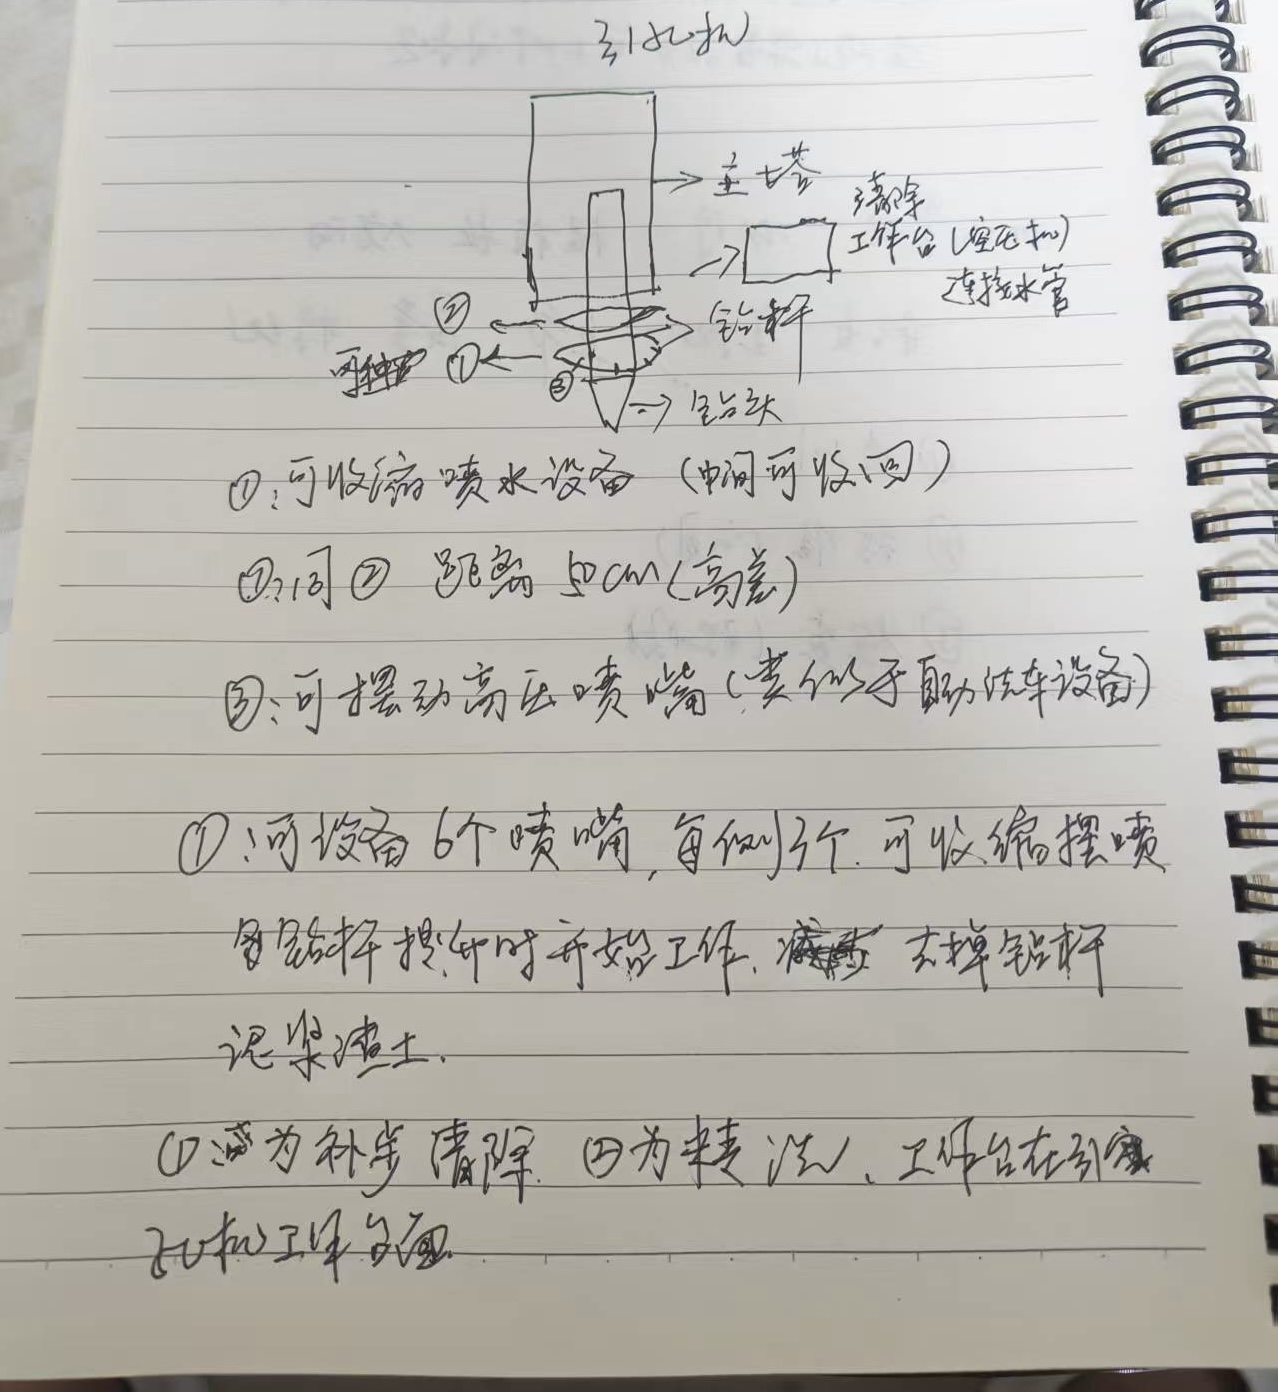 引孔机
主塔
清除
工作台(空压机)
连接水管
②
钻杆
①
③
钻头
①:可收缩喷水设备 (中间可收回)
②:同② 距离50cm(高差)
③:可摆动高压喷嘴(类似于自动洗车设备)
①:可设备6个喷嘴,每侧3个.可收缩摆喷
钻杆提升时开始工作、去掉钻杆
泥浆渣土.
①为初步清除 ②为精洗、工作台在引
孔机工作台面